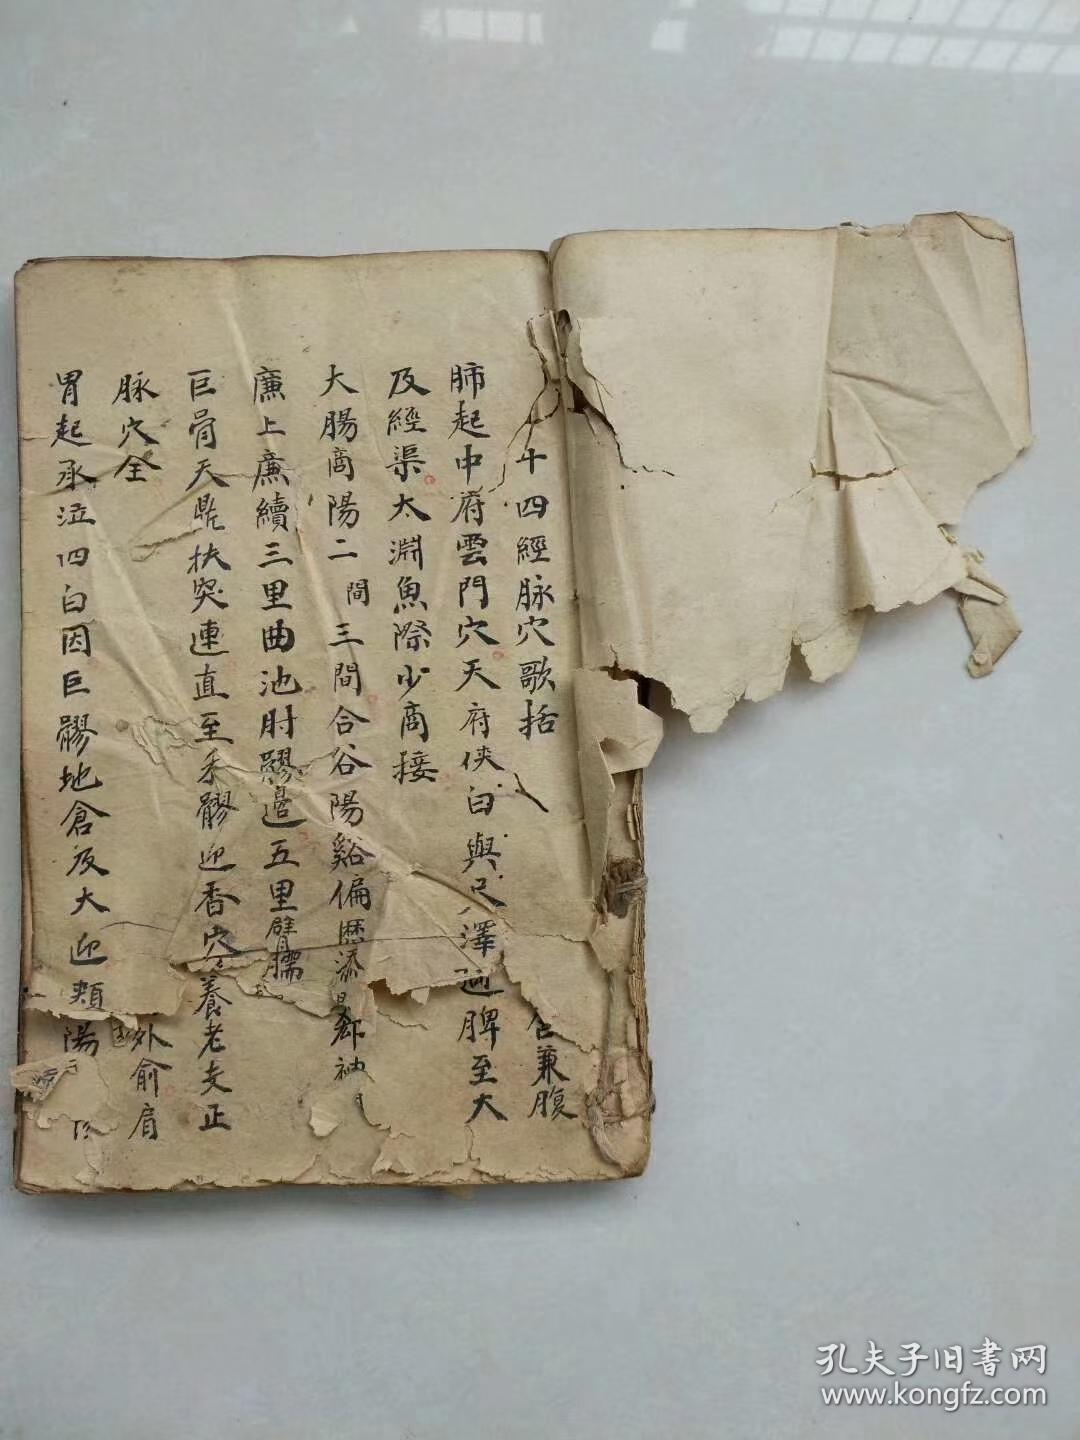 十四經脉穴歌括
肺起中府雲門穴天府俠白與尺澤
及經渠太淵魚際少商接
大腸商陽二間三間合谷陽谿偏歷添
廉上廉續三里曲池肘髎邊五里臂臑
巨骨天鼎扶突連直至禾髎迎香穴
脉穴全
胃起承泣四白因巨髎地倉及大迎頰
兼腹
脾至大
養老支正
外俞肩
孔夫子旧書网
www.kongfz.com